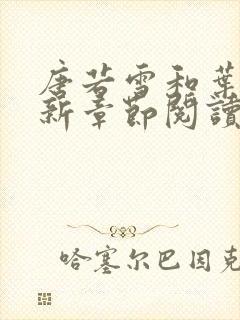 唐若雪和葉
新章節閱讀
哈塞尔巴因克